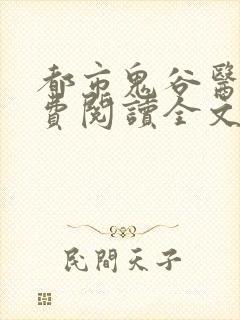 都市鬼谷醫
費閱讀全文
民間天子